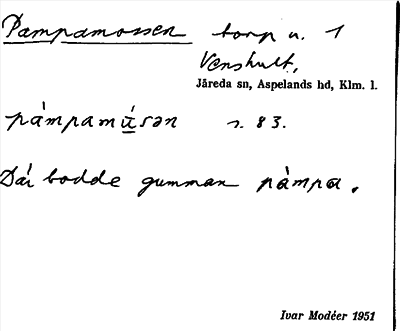 Pampamossen torp u. 1
Venshult,
Järeda sn, Aspelands hd, Klm. l.
pàmpamɯ́sən s. 83.
Där bodde gumman pàmpa.
Ivar Modéer 1951